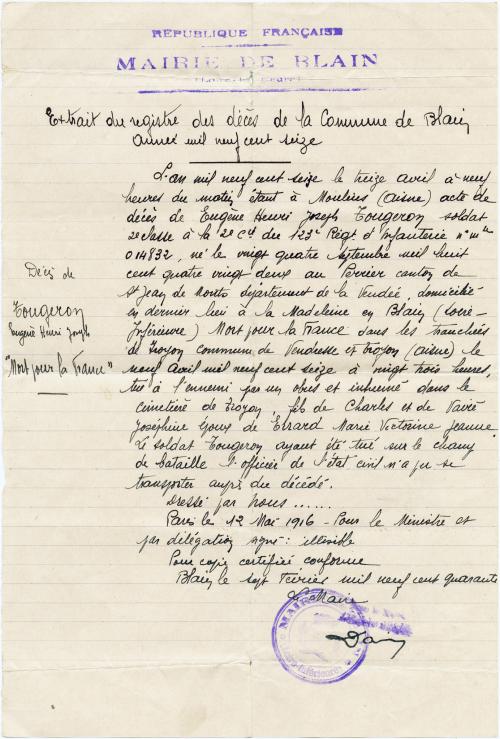 RÉPUBLIQUE FRANÇAISE
MAIRIE DE BLAIN
Extrait du registre des décès de la Commune de Blain
Année mil neuf cent seize
L'an mil neuf cent seize le treize avril à neuf
heures du matin étant à Moulins (aisne) acte de
décès de Eugène Henri Joseph Tougeron soldat
2e classe à la 2e Cie du 123e Régt d'Infanterie n° mle
014832, né le vingt quatre septembre mil huit
cent quatre vingt deux au Perrier canton de
St Jean de Monts département de la Vendée, domicilié
en dernier lieu à la Madeleine en Blain (Loire-
Inférieure) Mort pour la France dans les tranchées
de Troyon commune de Vendresse et Troyon (aisne) le
neuf Avril mil neuf cent seize à vingt trois heures,
tué à l'ennemi par un obus et inhumé dans le
cimetière de Troyon, fils de Charles et de Vairé
Joséphine époux de Erard Marie Victorine Jeanne
Le soldat Tougeron ayant été tué sur le champ
de bataille l'officier de l'état civil n'a pu se
transporter auprès du décédé.
Dressé par nous ......
Paris le 12 Mai 1916 - Pour le Ministre et
par délégation signé : illisible
Pour copie certifiée conforme
Blain le sept février mil neuf cent quarante
Le Maire
Décès de
Tougeron
Eugène Henri Joseph
"Mort pour la France"
MAIRIE
Loire-Inférieure